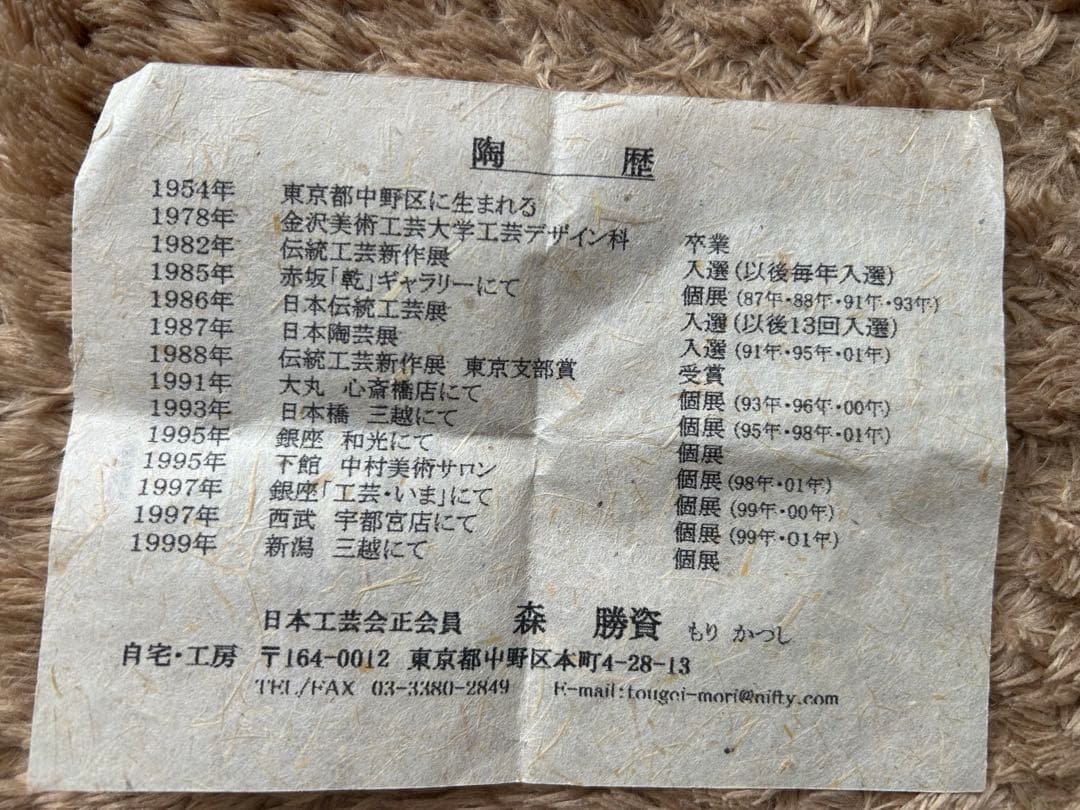 陶 歴
1954年 東京都中野区に生まれる
1978年 金沢美術工芸大学工芸デザイン科 卒業
1982年 伝統工芸新作展 入選(以後毎年入選)
1985年 赤坂「乾」ギャラリーにて 個展(87年・88年・91年・93年)
1986年 日本伝統工芸展 入選(以後13回入選)
1987年 日本陶芸展 入選(91年・95年・01年)
1988年 伝統工芸新作展 東京支部賞 受賞
1991年 大丸 心斎橋店にて 個展(93年・96年・00年)
1993年 日本橋 三越にて 個展(95年・98年・01年)
1995年 銀座 和光にて 個展
1995年 下館 中村美術サロン 個展(98年・01年)
1997年 銀座「工芸・いま」にて 個展(99年・00年)
1997年 西武 宇都宮店にて 個展(99年・01年)
1999年 新潟 三越にて 個展
日本工芸会正会員 森 勝資 もり かつし
自宅・工房 〒164-0012 東京都中野区本町4-28-13
TEL/FAX 03-3380-2849 E-mail:tougei-mori@nifty.com